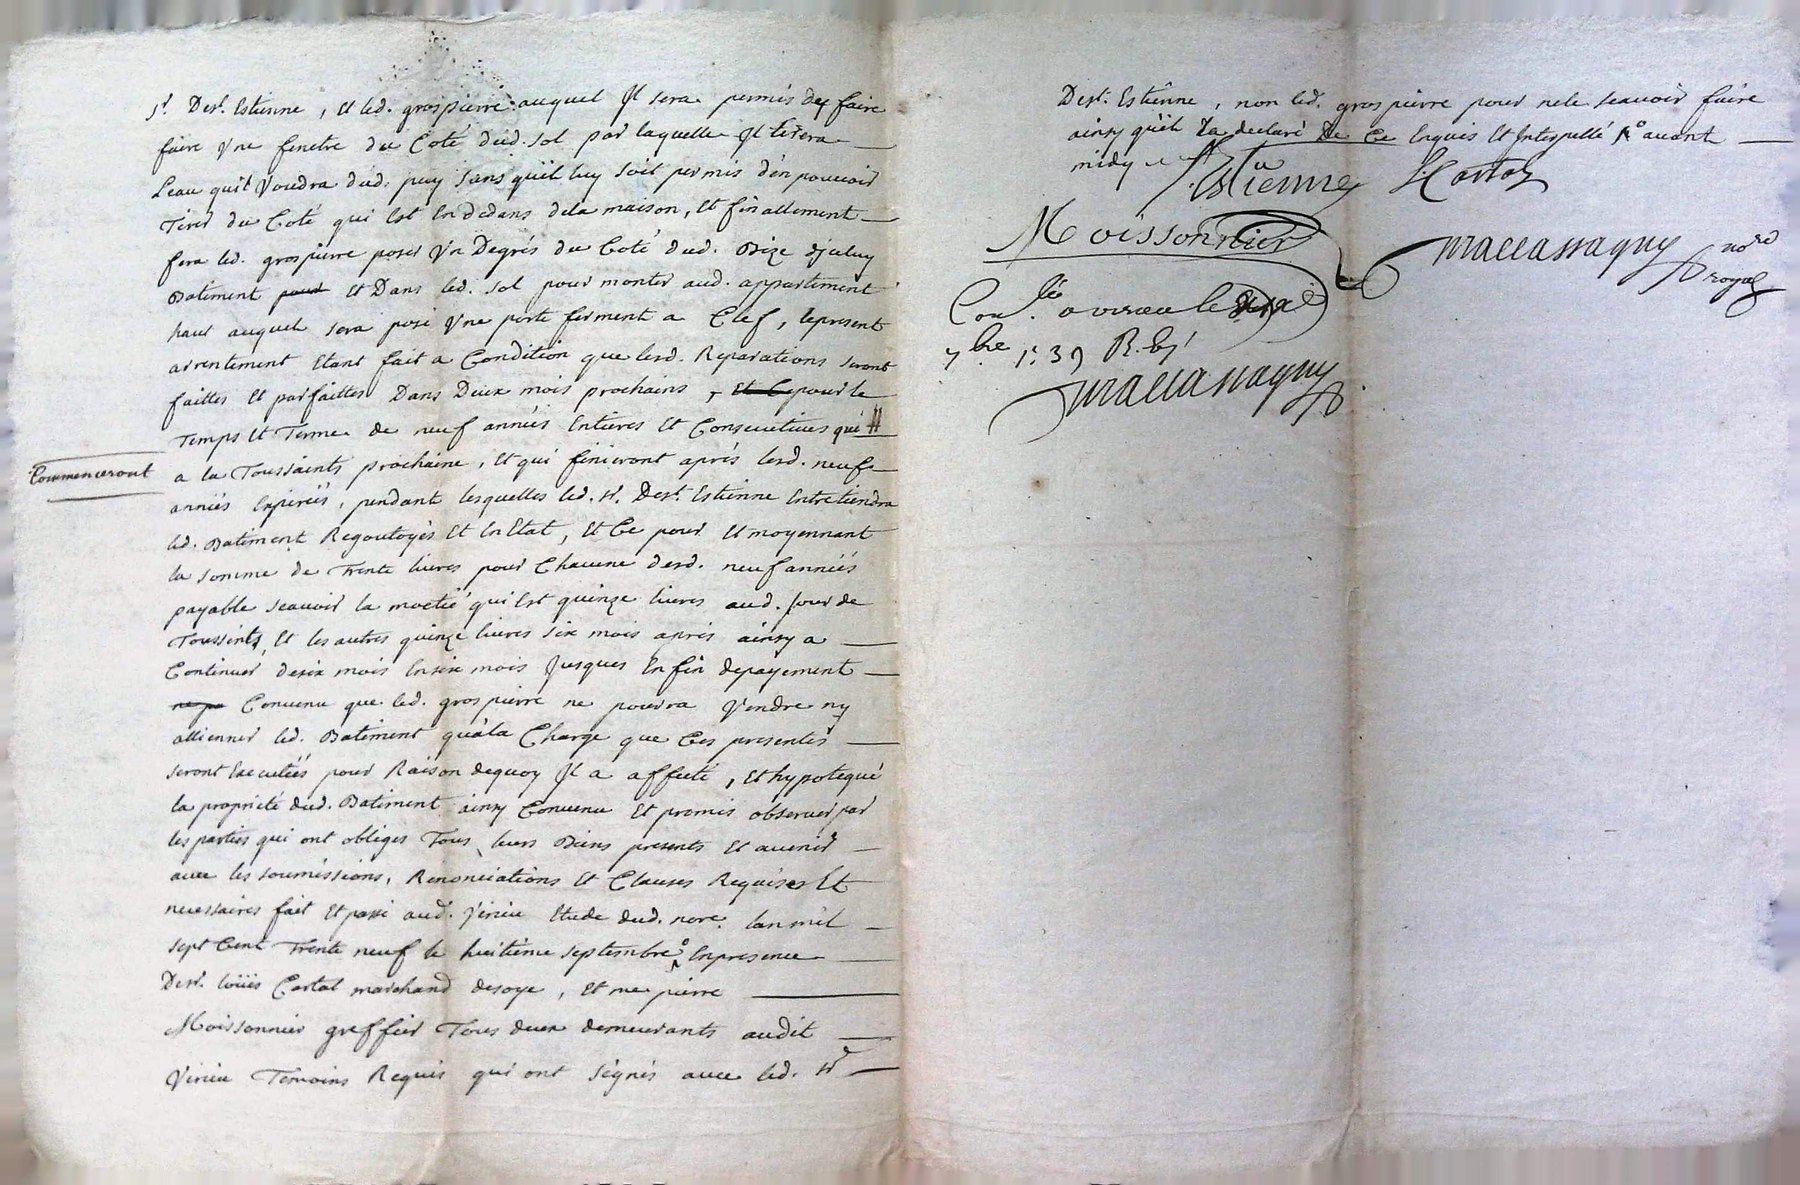 sr. Desr. Estienne, Et led. grospierre auquel Il sera permis dey faire
faire Vne fenetre du Coté dud. sol par laquelle Il tirera
Leau quil Voudra dud. puy sans qu'il luy soit permis d'en pouvoir
Tirer du Coté qui Est En dedans dela maison, Et finallement
fera led. grospierre poser Vn Degrés du Coté dud. Bize d'jceluy
Batiment pour Et Dans led. sol pour monter aud. appartement
haut auquel sera posé Vne porte ferment a Clef, le present
arrentement Etant fait a Condition que lesd. Reparations seront
faittes Et parfaittes Dans Deux mois prochains, Et C pour le
Temps Et Terme de neuf années Entieres Et Consecutives qui #
Commenceront
a la Toussaints prochaine, Et qui finiront aprés lesd. neuf
années Expirées, pendant lesquelles led. sr. Desr. Estienne Entretiendra
led. Batiment Regoutoyés Et En Etat, Et Ce pour Et moyennant
la somme de Trente livres pour Chacune desd. neuf années
payable scavoir la moetié qui Est quinze livres aud. Jour de
Toussints, Et les autres quinze livres six mois aprés ainsy a
Continuer desix mois En six mois Jusques En fin depayement
ne pe Convenu que led. grospierre ne pourra Vendre ny
allienner led. Batiment qu'ala Charge que Ces presentes
seront Executées pour Raison dequoy Il a affecté, Et hypotequé
la propriété dud. Batiment ainsy Convenu Et promis observer par
les parties qui ont obligés Tous leurs Biens presents Et avenir
avec les soumissions, Renonciations Et Clauses Requises Et
necessaires fait Et passé aud. Virieu Etude dud. nore. lan mil
sept Cent Trente neuf le huitième septembre Enpresence
Desr. loüis Cartal marchand desoye, Et me pierre
Moissonnier greffier Tous deux demeurants audit
Virieu Temoins Requis qui ont signés avec led. sr
Desr. Estienne, non led. grospierre pour nele scavoir faire
ainsy qu'il la declaré De Ce Enquis Et Interpellé avant
midy
Estienne L Cartal
Moissonnier
Mallassagny nore
royal
Con.lé a virieu le
7bre 1739 R.
Mallassagny